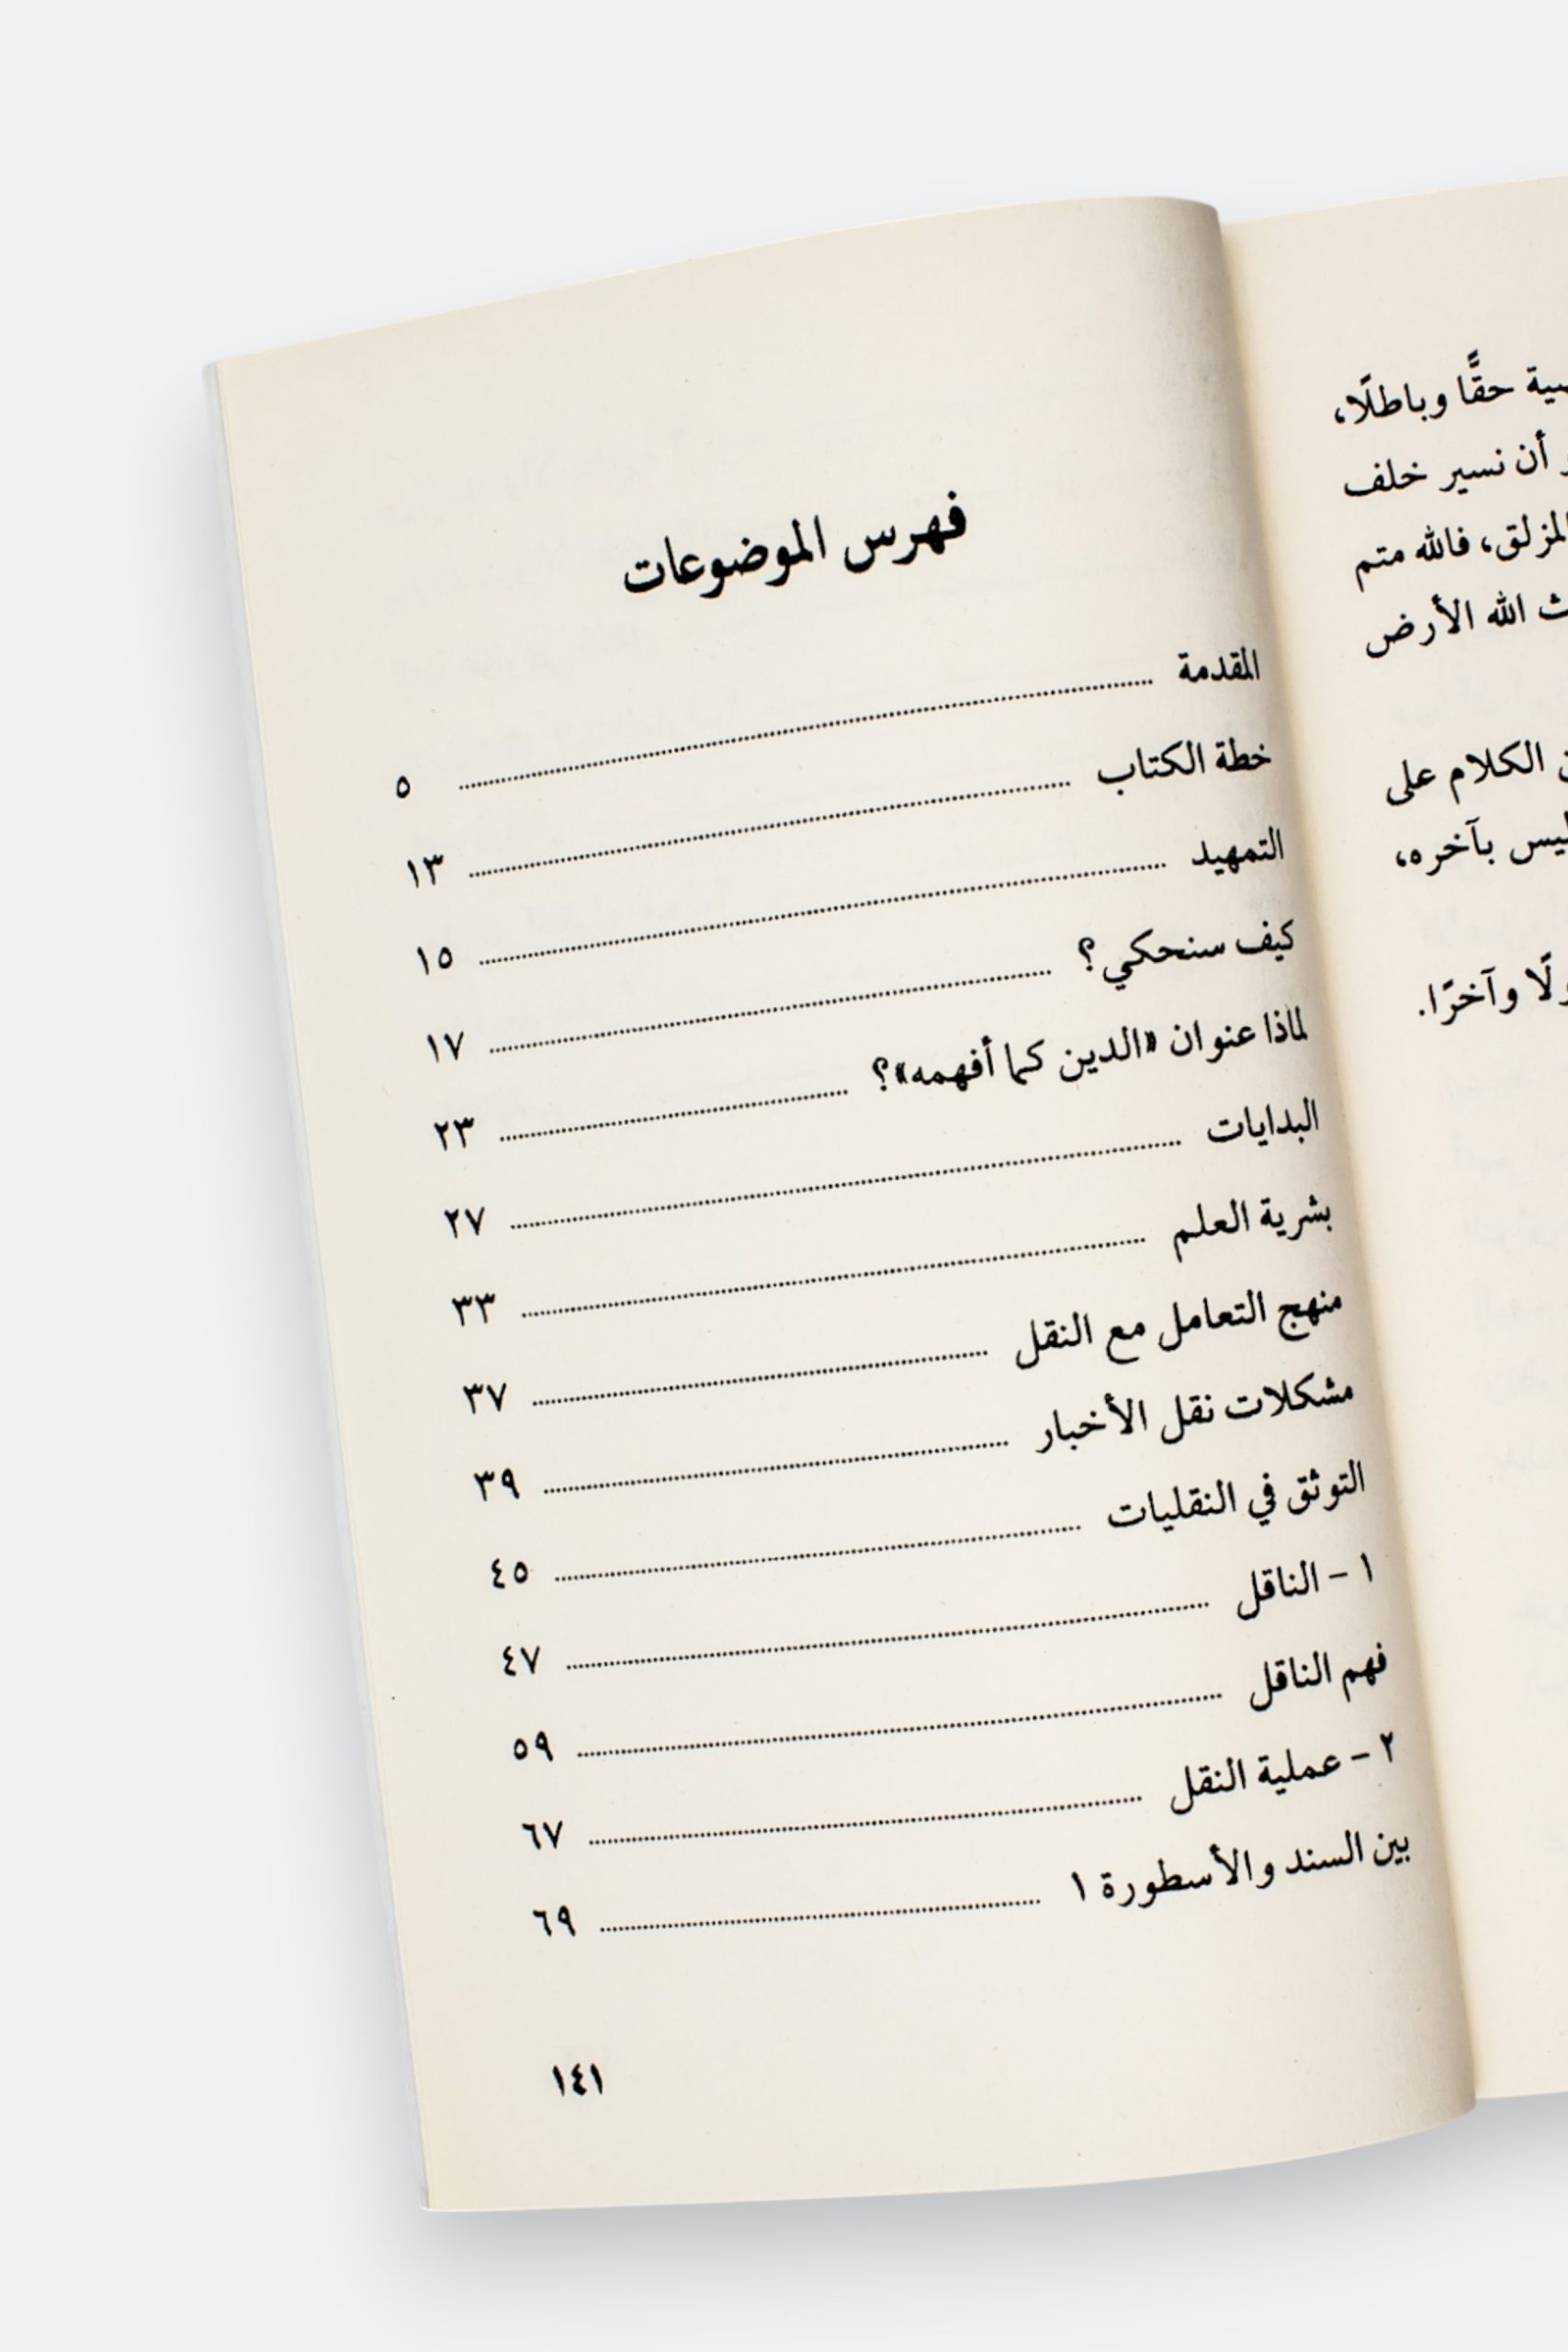 حقًّا وباطلًا،
أن نسير خلف
المزلق، فالله متم
الله الأرض
الكلام على
بآخره،
وآخرًا.
فهرس الموضوعات
المقدمة ٥
خطة الكتاب ١٣
التمهيد ١٥
كيف سنحكي؟ ١٧
لماذا عنوان «الدين كما أفهمه»؟ ٢٣
البدايات ٢٧
بشرية العلم ٣٣
منهج التعامل مع النقل ٣٧
مشكلات نقل الأخبار ٣٩
التوثق في النقليات ٤٥
١ - الناقل ٤٧
فهم الناقل ٥٩
٢ - عملية النقل ٦٧
بين السند والأسطورة ١ ٦٩
١٤١